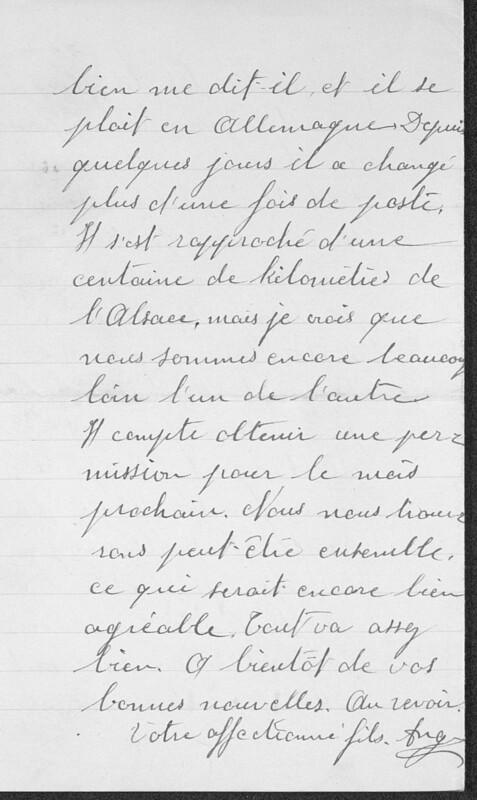 bien me dit-il, et il se
plait en Allemagne. Depuis
quelques jours il a changé
plus d'une fois de poste.
Il s'est rapproché d'une
centaine de kilomètres de
l'Alsace, mais je crois que
nous sommes encore beaucoup
loin l'un de l'autre
Il compte obtenir une per-
mission pour le mois
prochain. Nous nous trouve-
rons peut-être ensemble,
ce qui serait encore bien
agréable. Tout va assez
bien. A bientôt de vos
bonnes nouvelles. Au revoir.
Votre affectionné fils. Aug